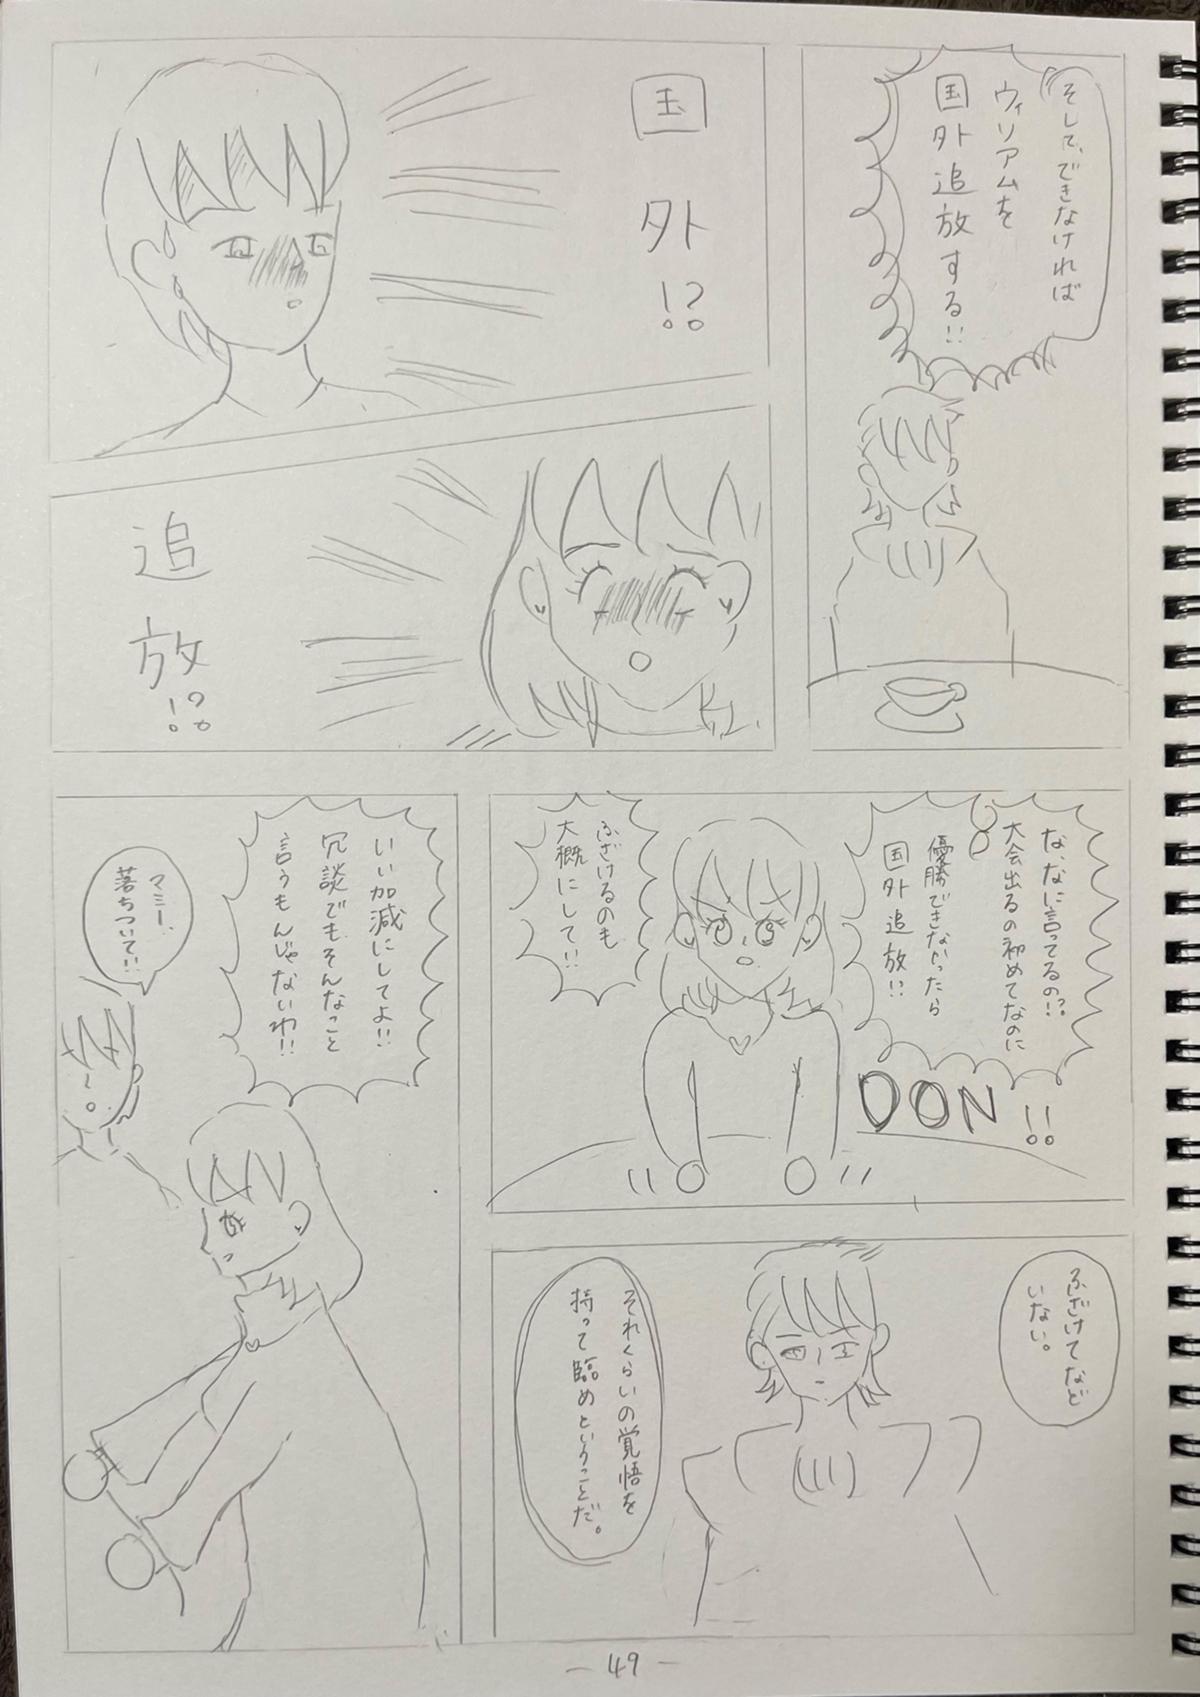 そして、できなければ
ウィリアムを
国外追放する!!
国外!?
追放!?
な、なに言ってるの!?
大会出るの初めてなのに
優勝できなかったら
国外追放!?
ふざけるのも
大概にして!!
DON!!
ふざけてなど
いない。
それくらいの覚悟を
持って臨めということだ。
いい加減にしてよ!!
冗談でもそんなこと
言うもんじゃないわ!!
マミー、
落ちついて!!
- 49 -